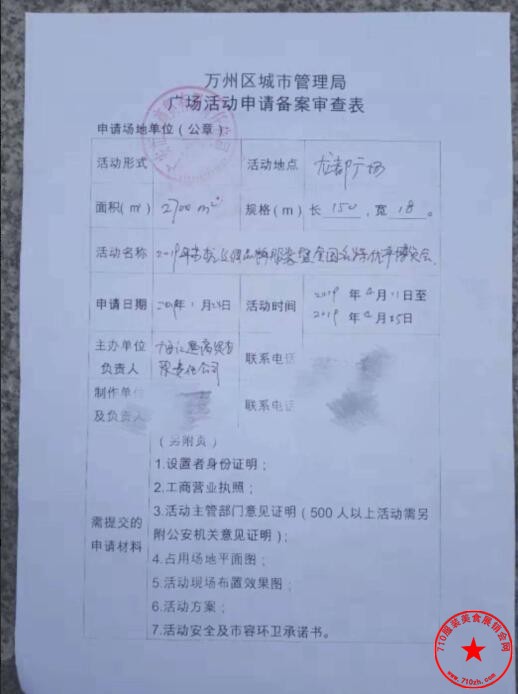 万州区城市管理局
广场活动申请备案审查表
申请场地单位（公章）
活动形式
活动地点 龙都广场
面积(㎡) 2700 m²
规格(m) 长 150, 宽 18 。
活动名称 2019年
品牌服装暨全国名特优产博览会
申请日期 2019年1月
活动时间 2019 年 4 月 11 日至
2019 年 4 月 25 日
主办单位
负责人
限责任公司
联系电话
制作单位
及负责人
联系电话
（另附页）
需提交的
申请材料
1.设置者身份证明；
2.工商营业执照；
3.活动主管部门意见证明（500 人以上活动需另
附公安机关意见证明）；
4.占用场地平面图；
5.活动现场布置效果图；
6.活动方案；
7.活动安全及市容环卫承诺书。
710服装美食展销会网
www.710zh.com